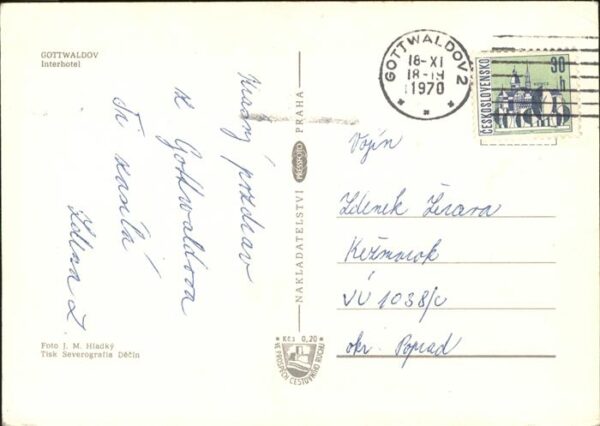 GOTTWALDOV
Interhotel
Krásný pozdrav
z Gottwaldova
Ti zasílá
Zdena Z.
Foto J. M. Hladký
Tisk Severografia Děčín
NAKLADATELSTVÍ PRESSFOTO PRAHA
Kčs 0,20
VE PROSPĚCH CESTOVNÍHO RUCHU
GOTTWALDOV 2
18-XI
18-19
1970
ČESKOSLOVENSKO
30 h
Vojín
Zdenek
Kežmarok
VÚ 1038/c
okr. Poprad